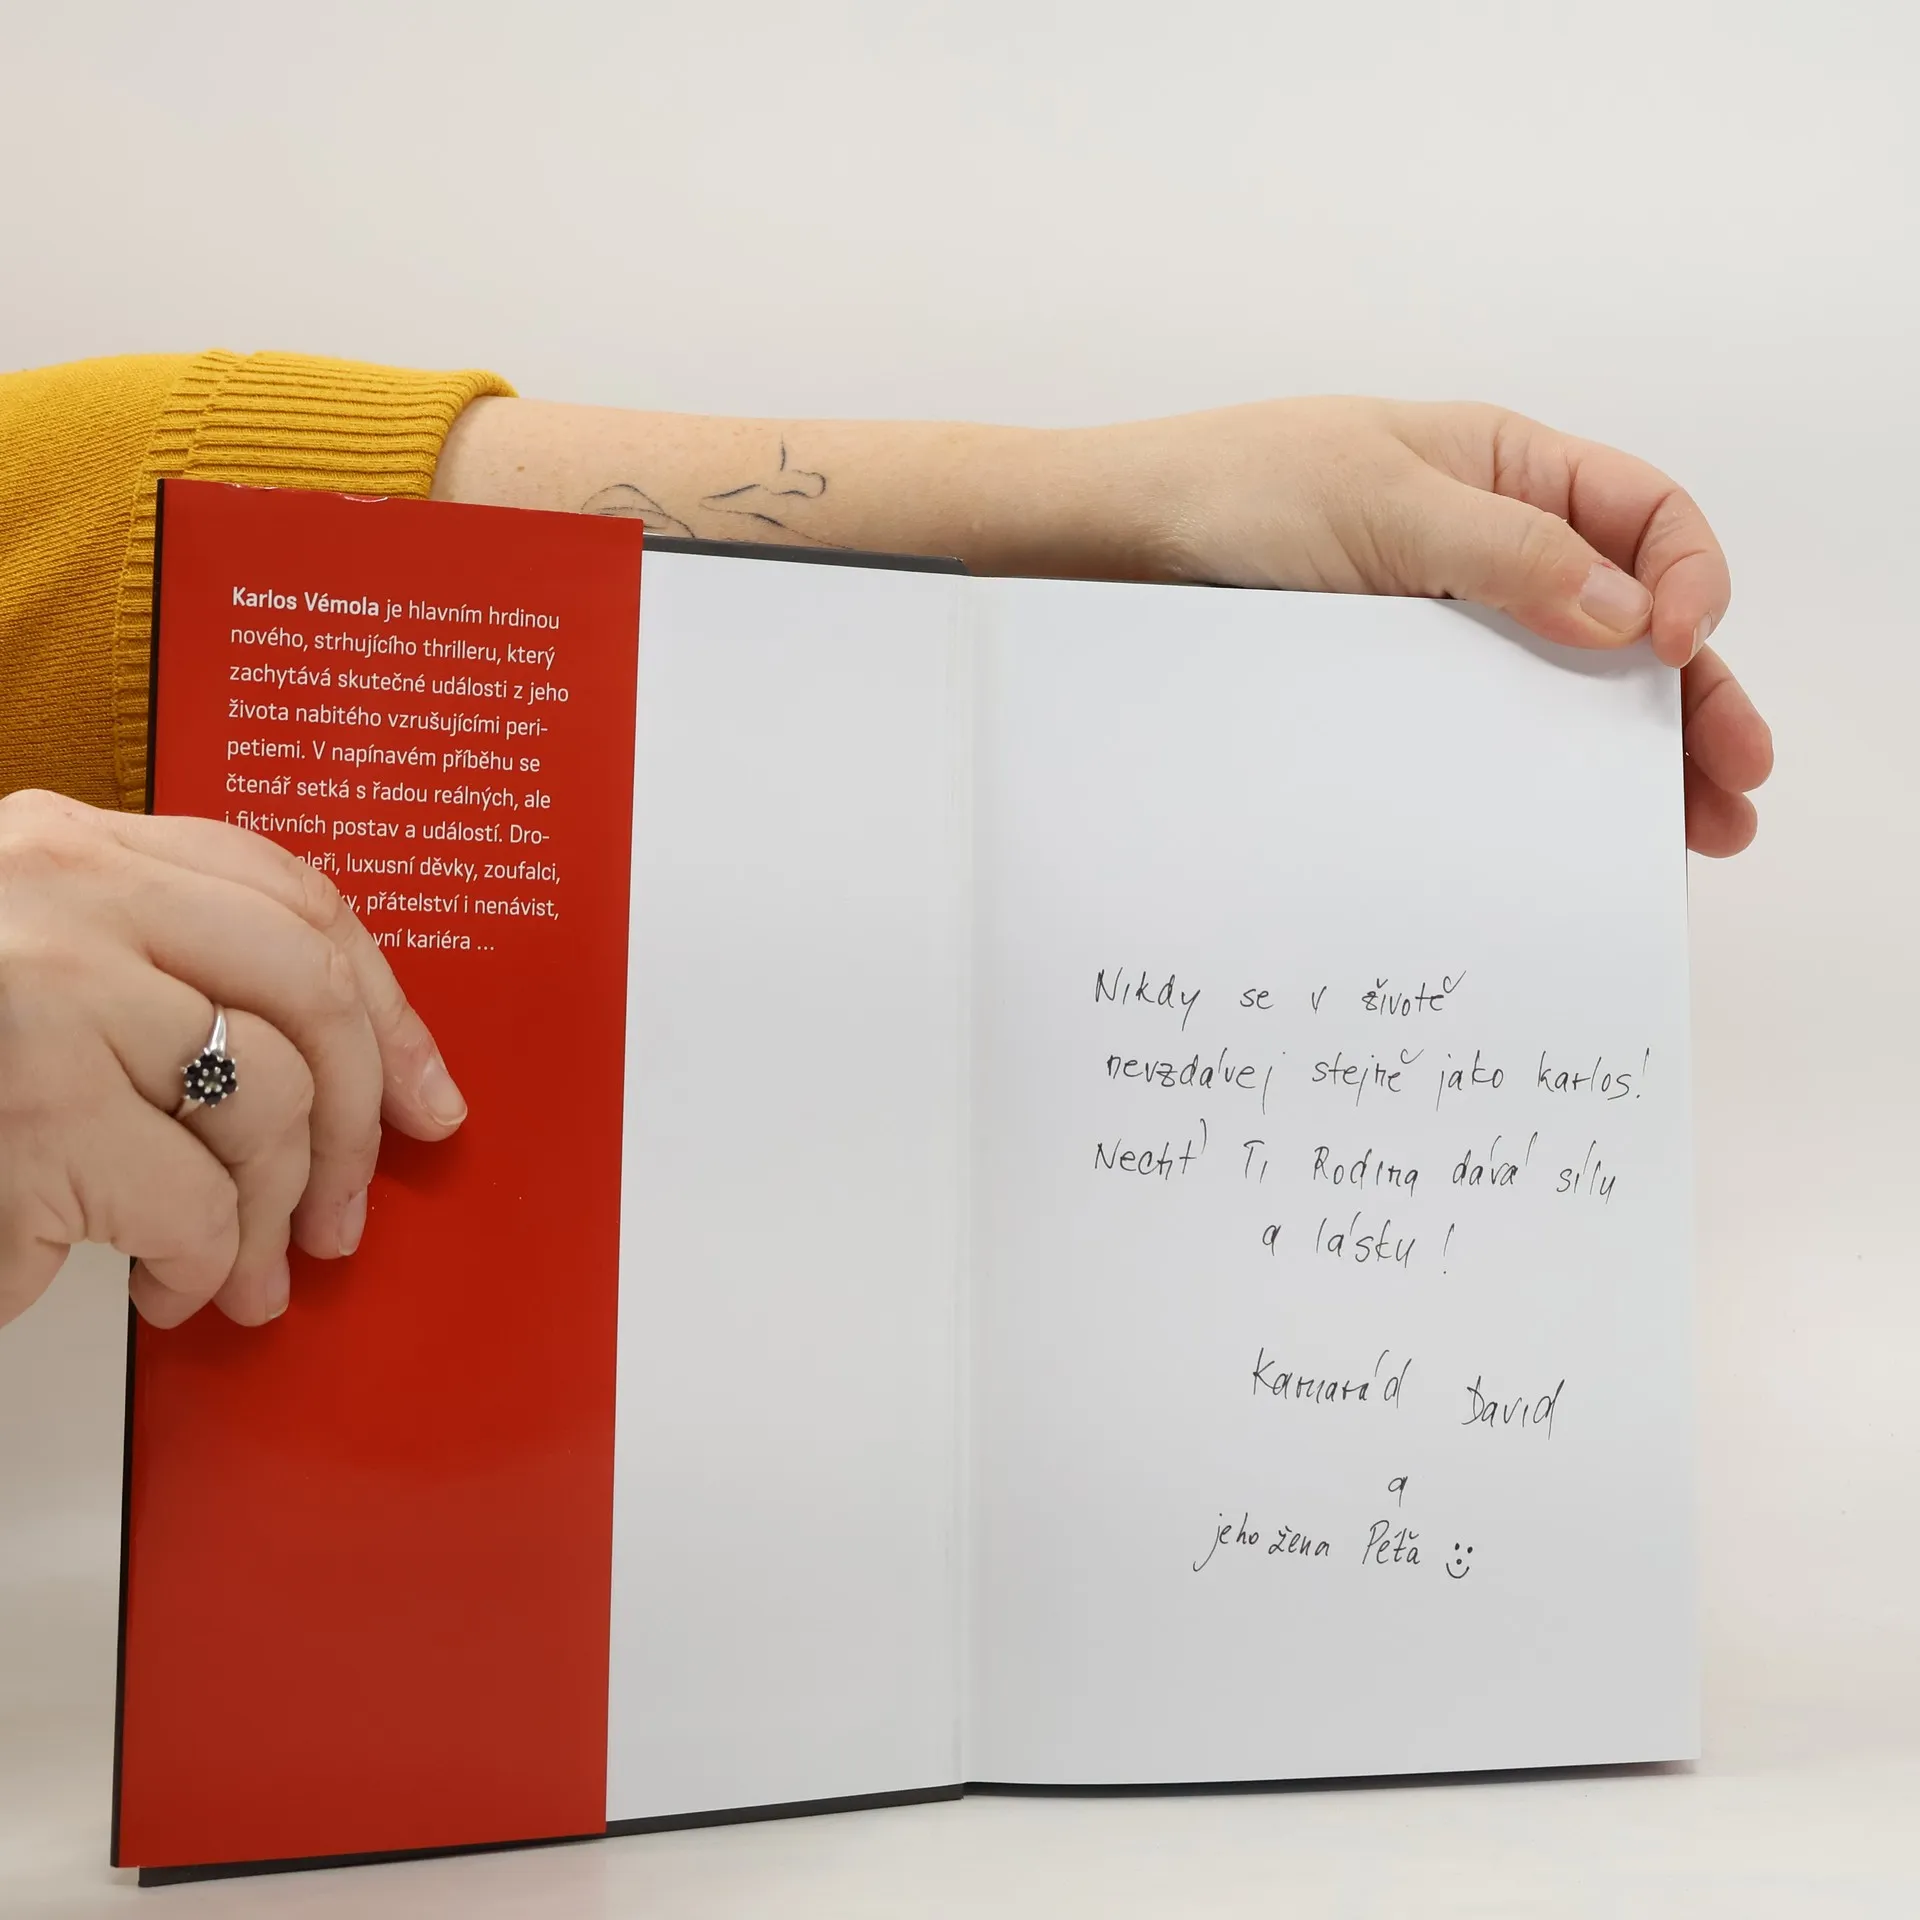 Karlos Vémola je hlavním hrdinou
nového, strhujícího thrilleru, který
zachytává skutečné události z jeho
života nabitého vzrušujícími peri-
petiemi. V napínavém příběhu se
čtenář setká s řadou reálných, ale
i fiktivních postav a událostí. Dro-
leři, luxusní děvky, zoufalci,
ky, přátelství i nenávist,
vní kariéra ...
Nikdy se v životě
nevzdávej stejně jako karlos!
Nechť Ti Rodina dává sílu
a lásku!
Kamarád David
a
jeho žena Péťa